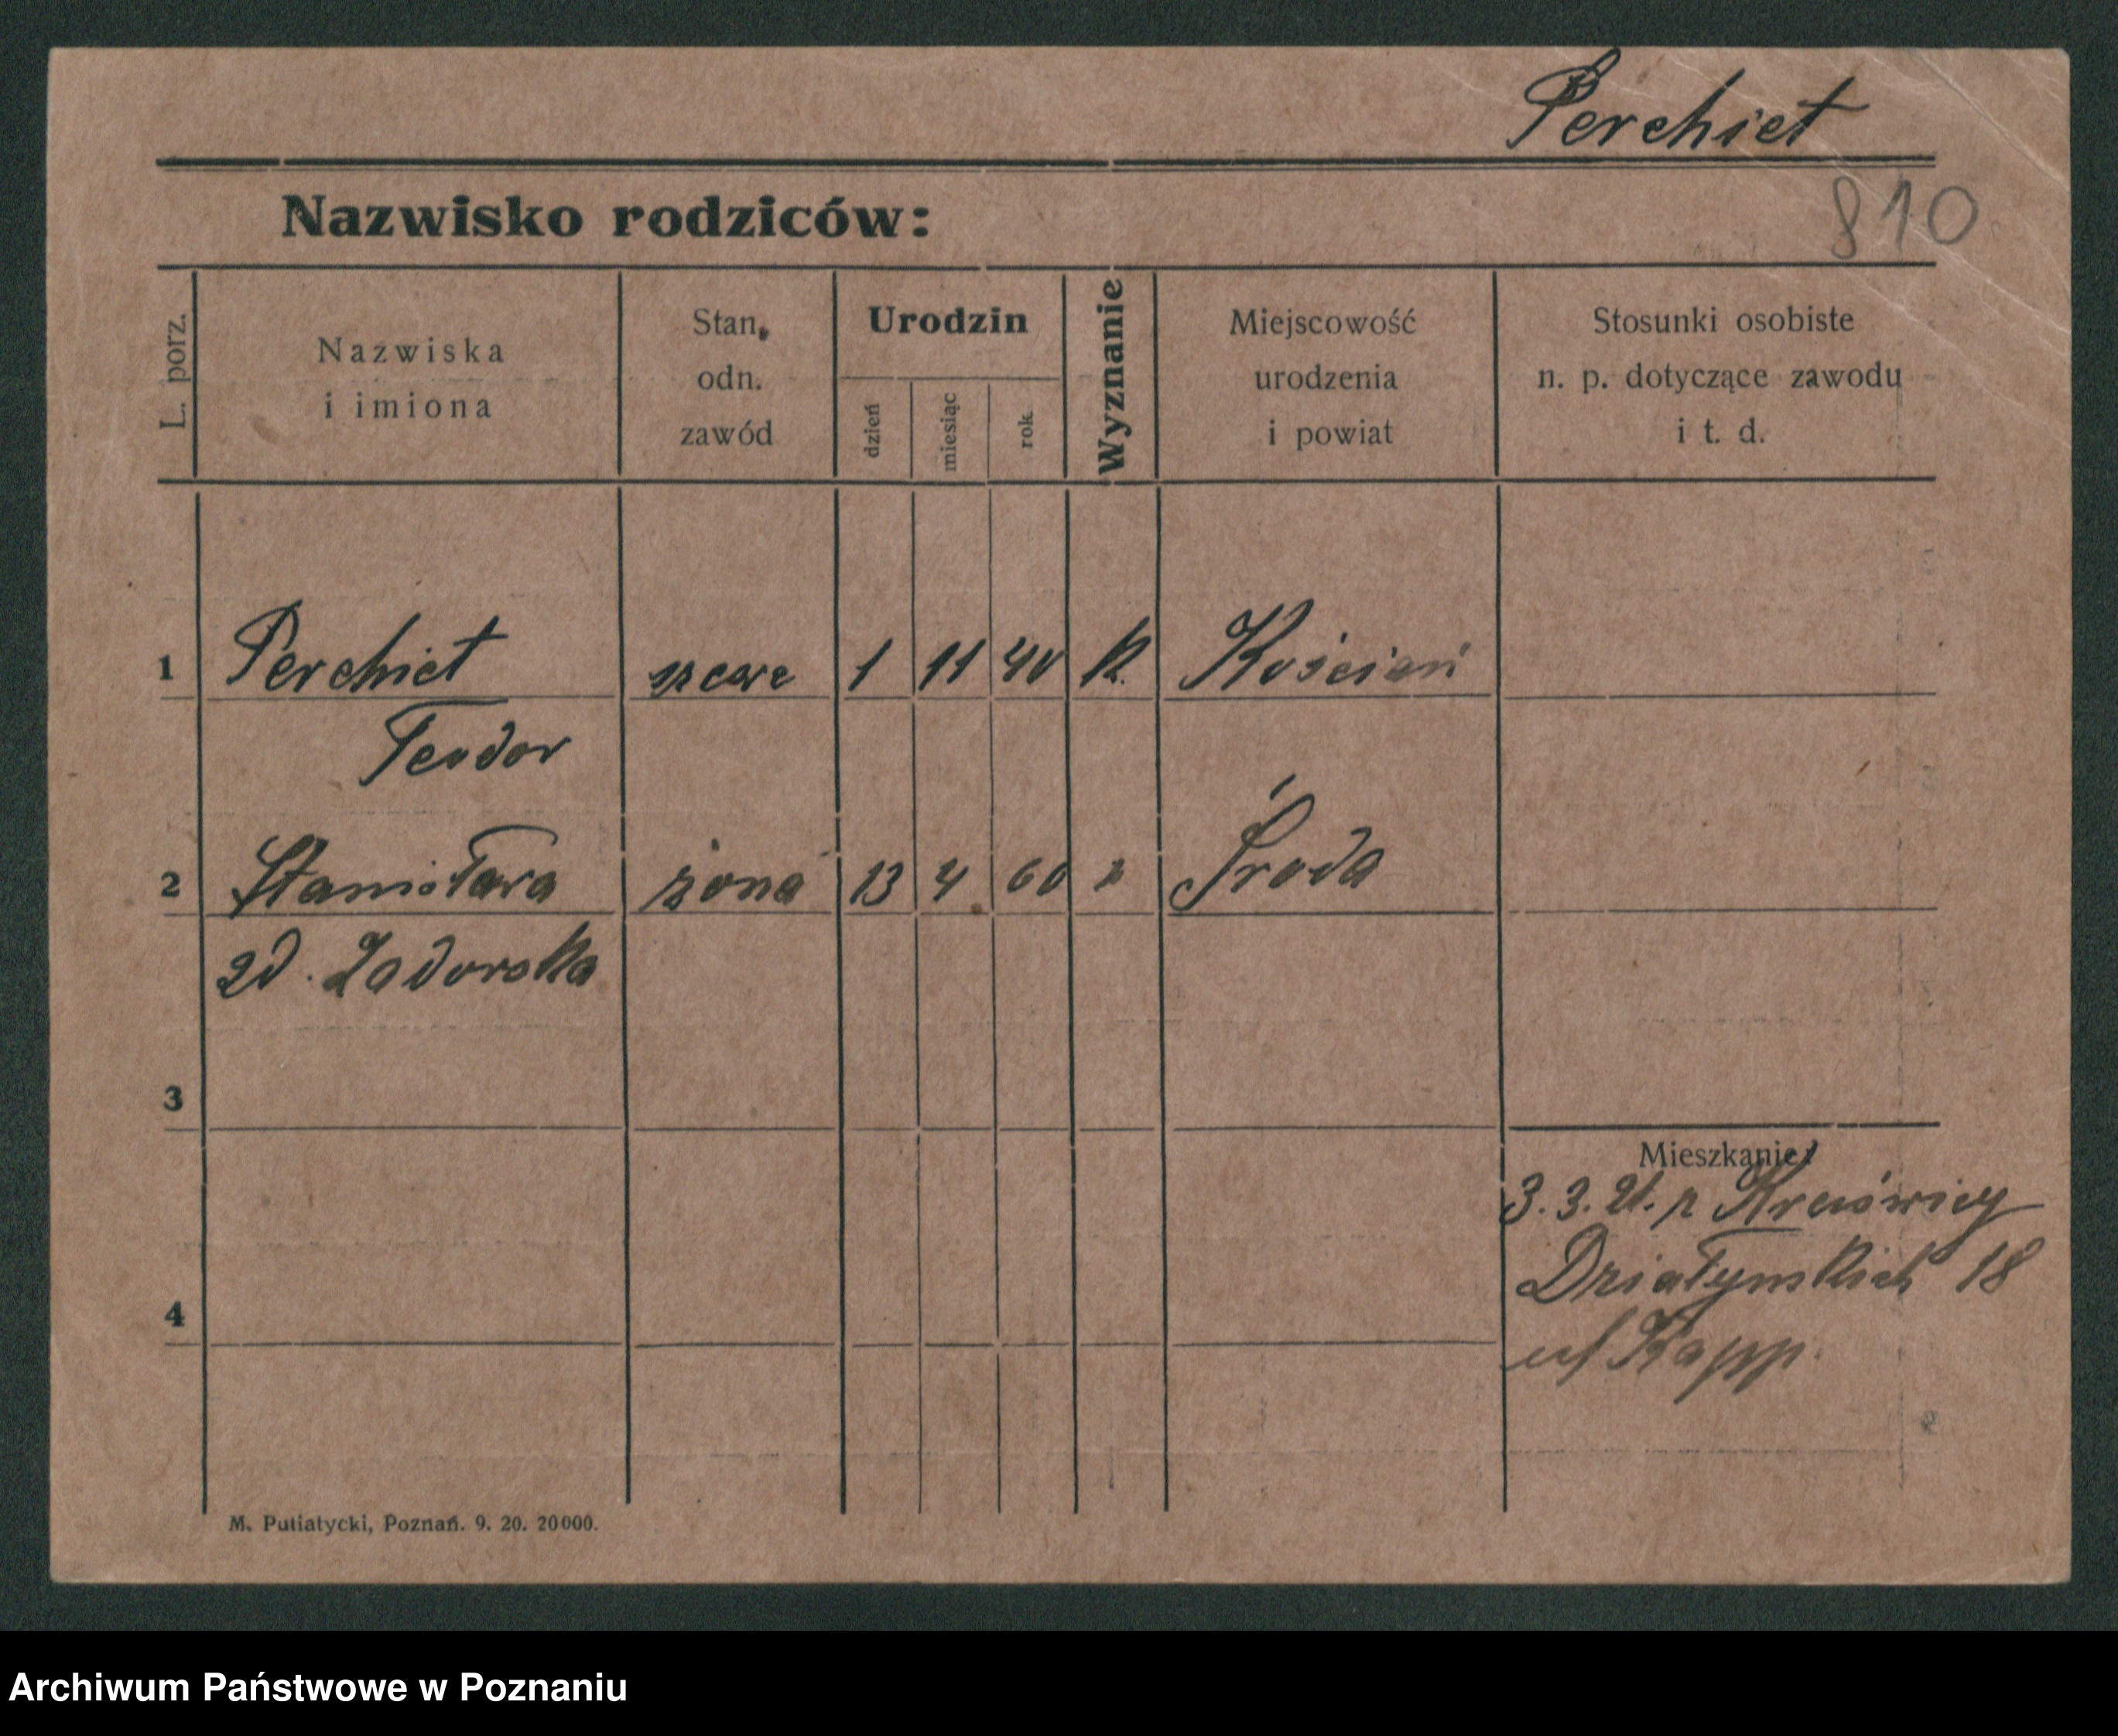 Perchiet
Nazwisko rodziców:
810
L. porz.
Nazwiska
i imiona
Stan,
odn.
zawód
Urodzin
dzień
miesiąc
rok.
Wyznanie
Miejscowość
urodzenia
i powiat
Stosunki osobiste
n. p. dotyczące zawodu
i t. d.
1 Perchiet szewc 1 11 40 k. Kościan
Teodor
2 Stanisława żona 13 4 60 Środa
zd. Zadorska
3
Mieszkanie:
3. 3. 21. z
Działyńskich 18
4
u/ Kapp.
M. Putiatycki, Poznań. 9. 20. 20000.
Archiwum Państwowe w Poznaniu